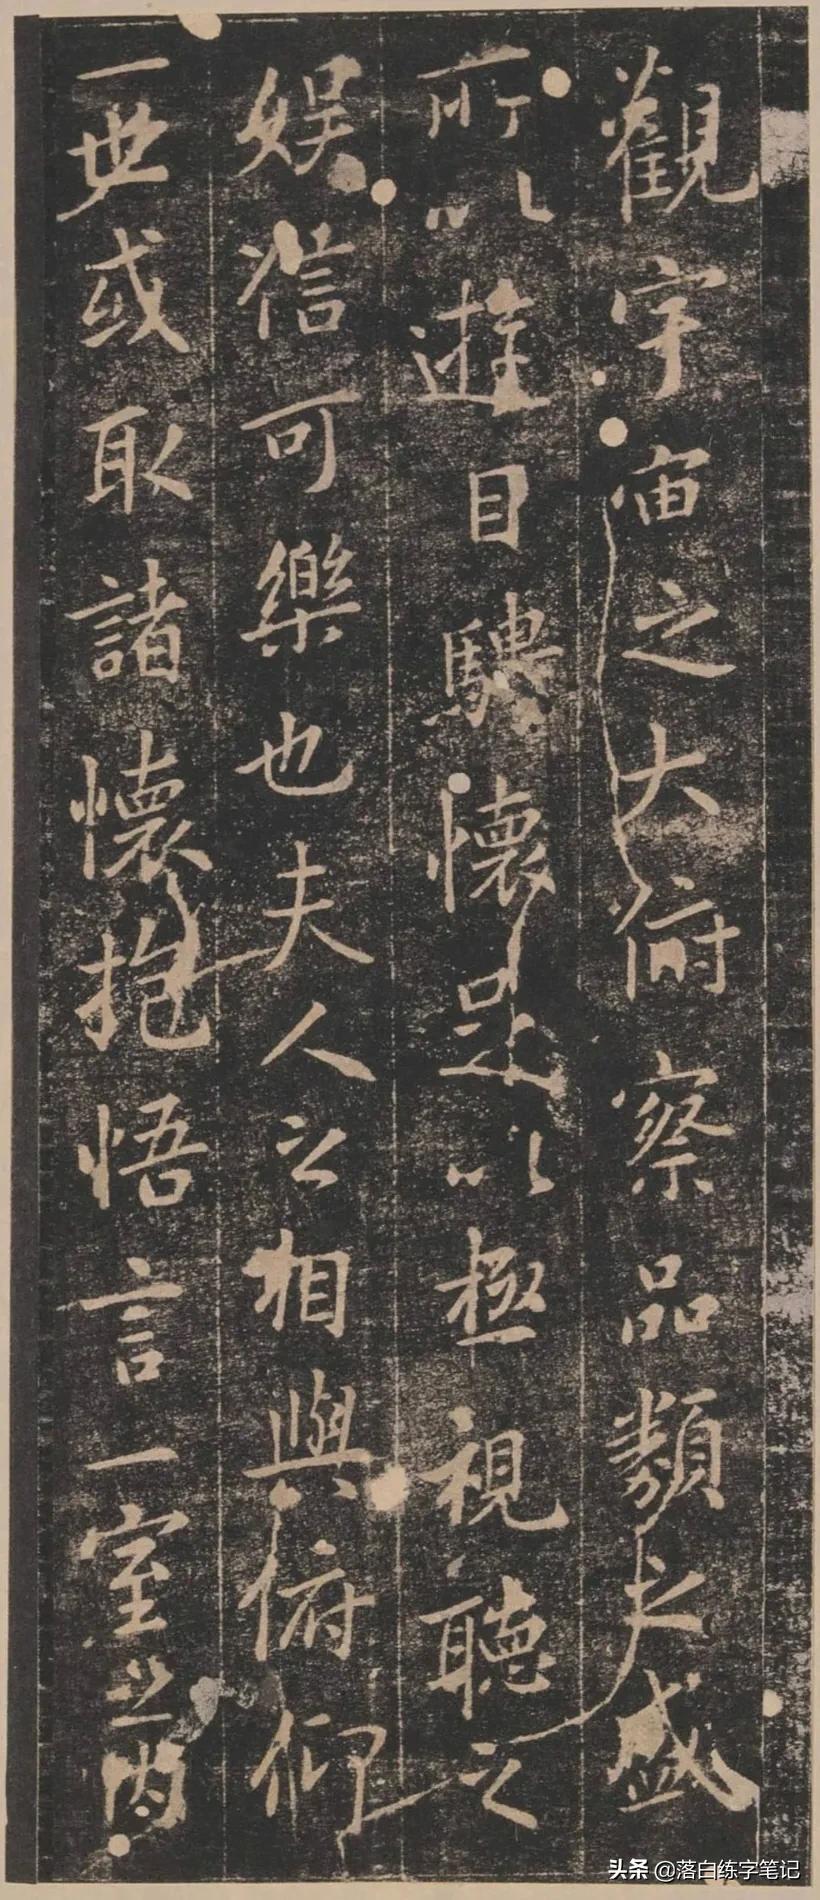 觀宇宙之大俯察品類之盛
所以遊目騁懷足以極視聽之
娛信可樂也夫人之相與俯仰
一世或取諸懷抱悟言一室之內
头条 @落白练字笔记